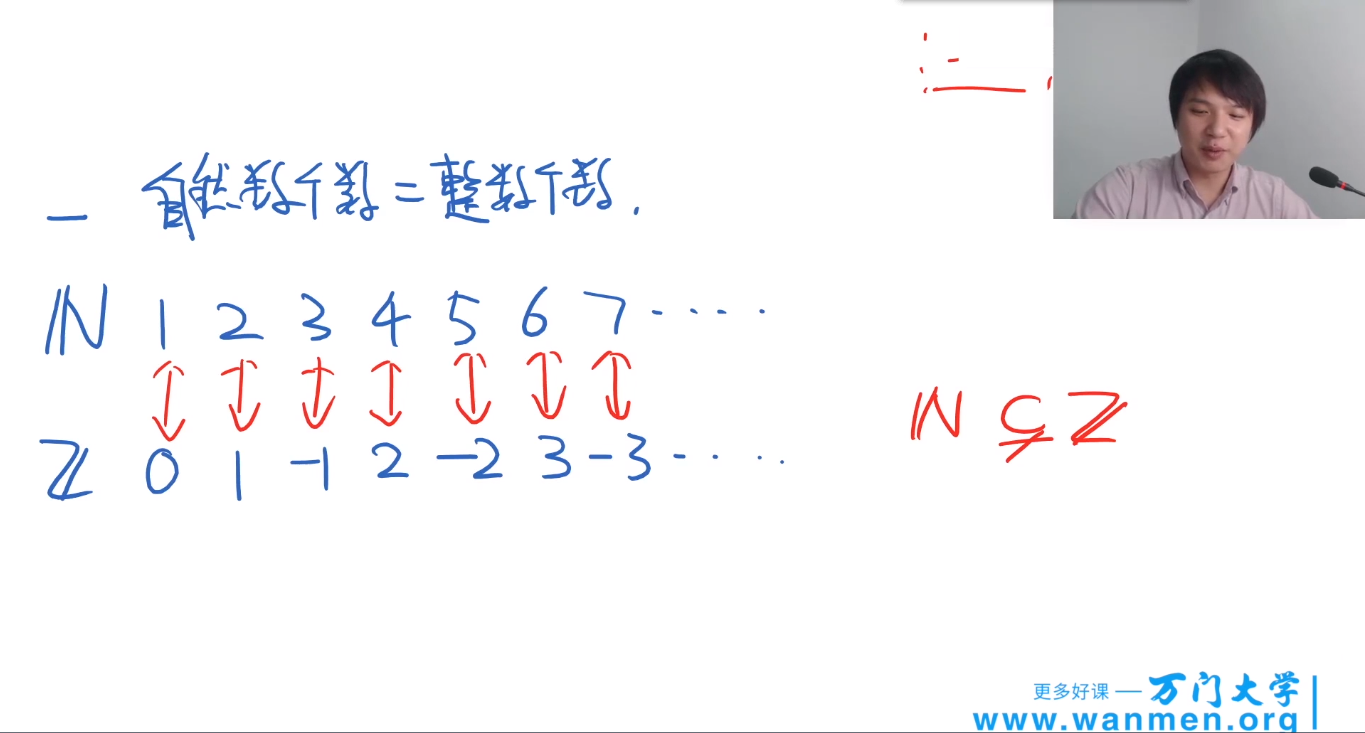 — 自然数个数=整数个数.
ℕ 1 2 3 4 5 6 7 ·····
ℤ 0 1 -1 2 -2 3 -3 ·····
ℕ ⊊ ℤ
更多好课 — 万门大学
www.wanmen.org